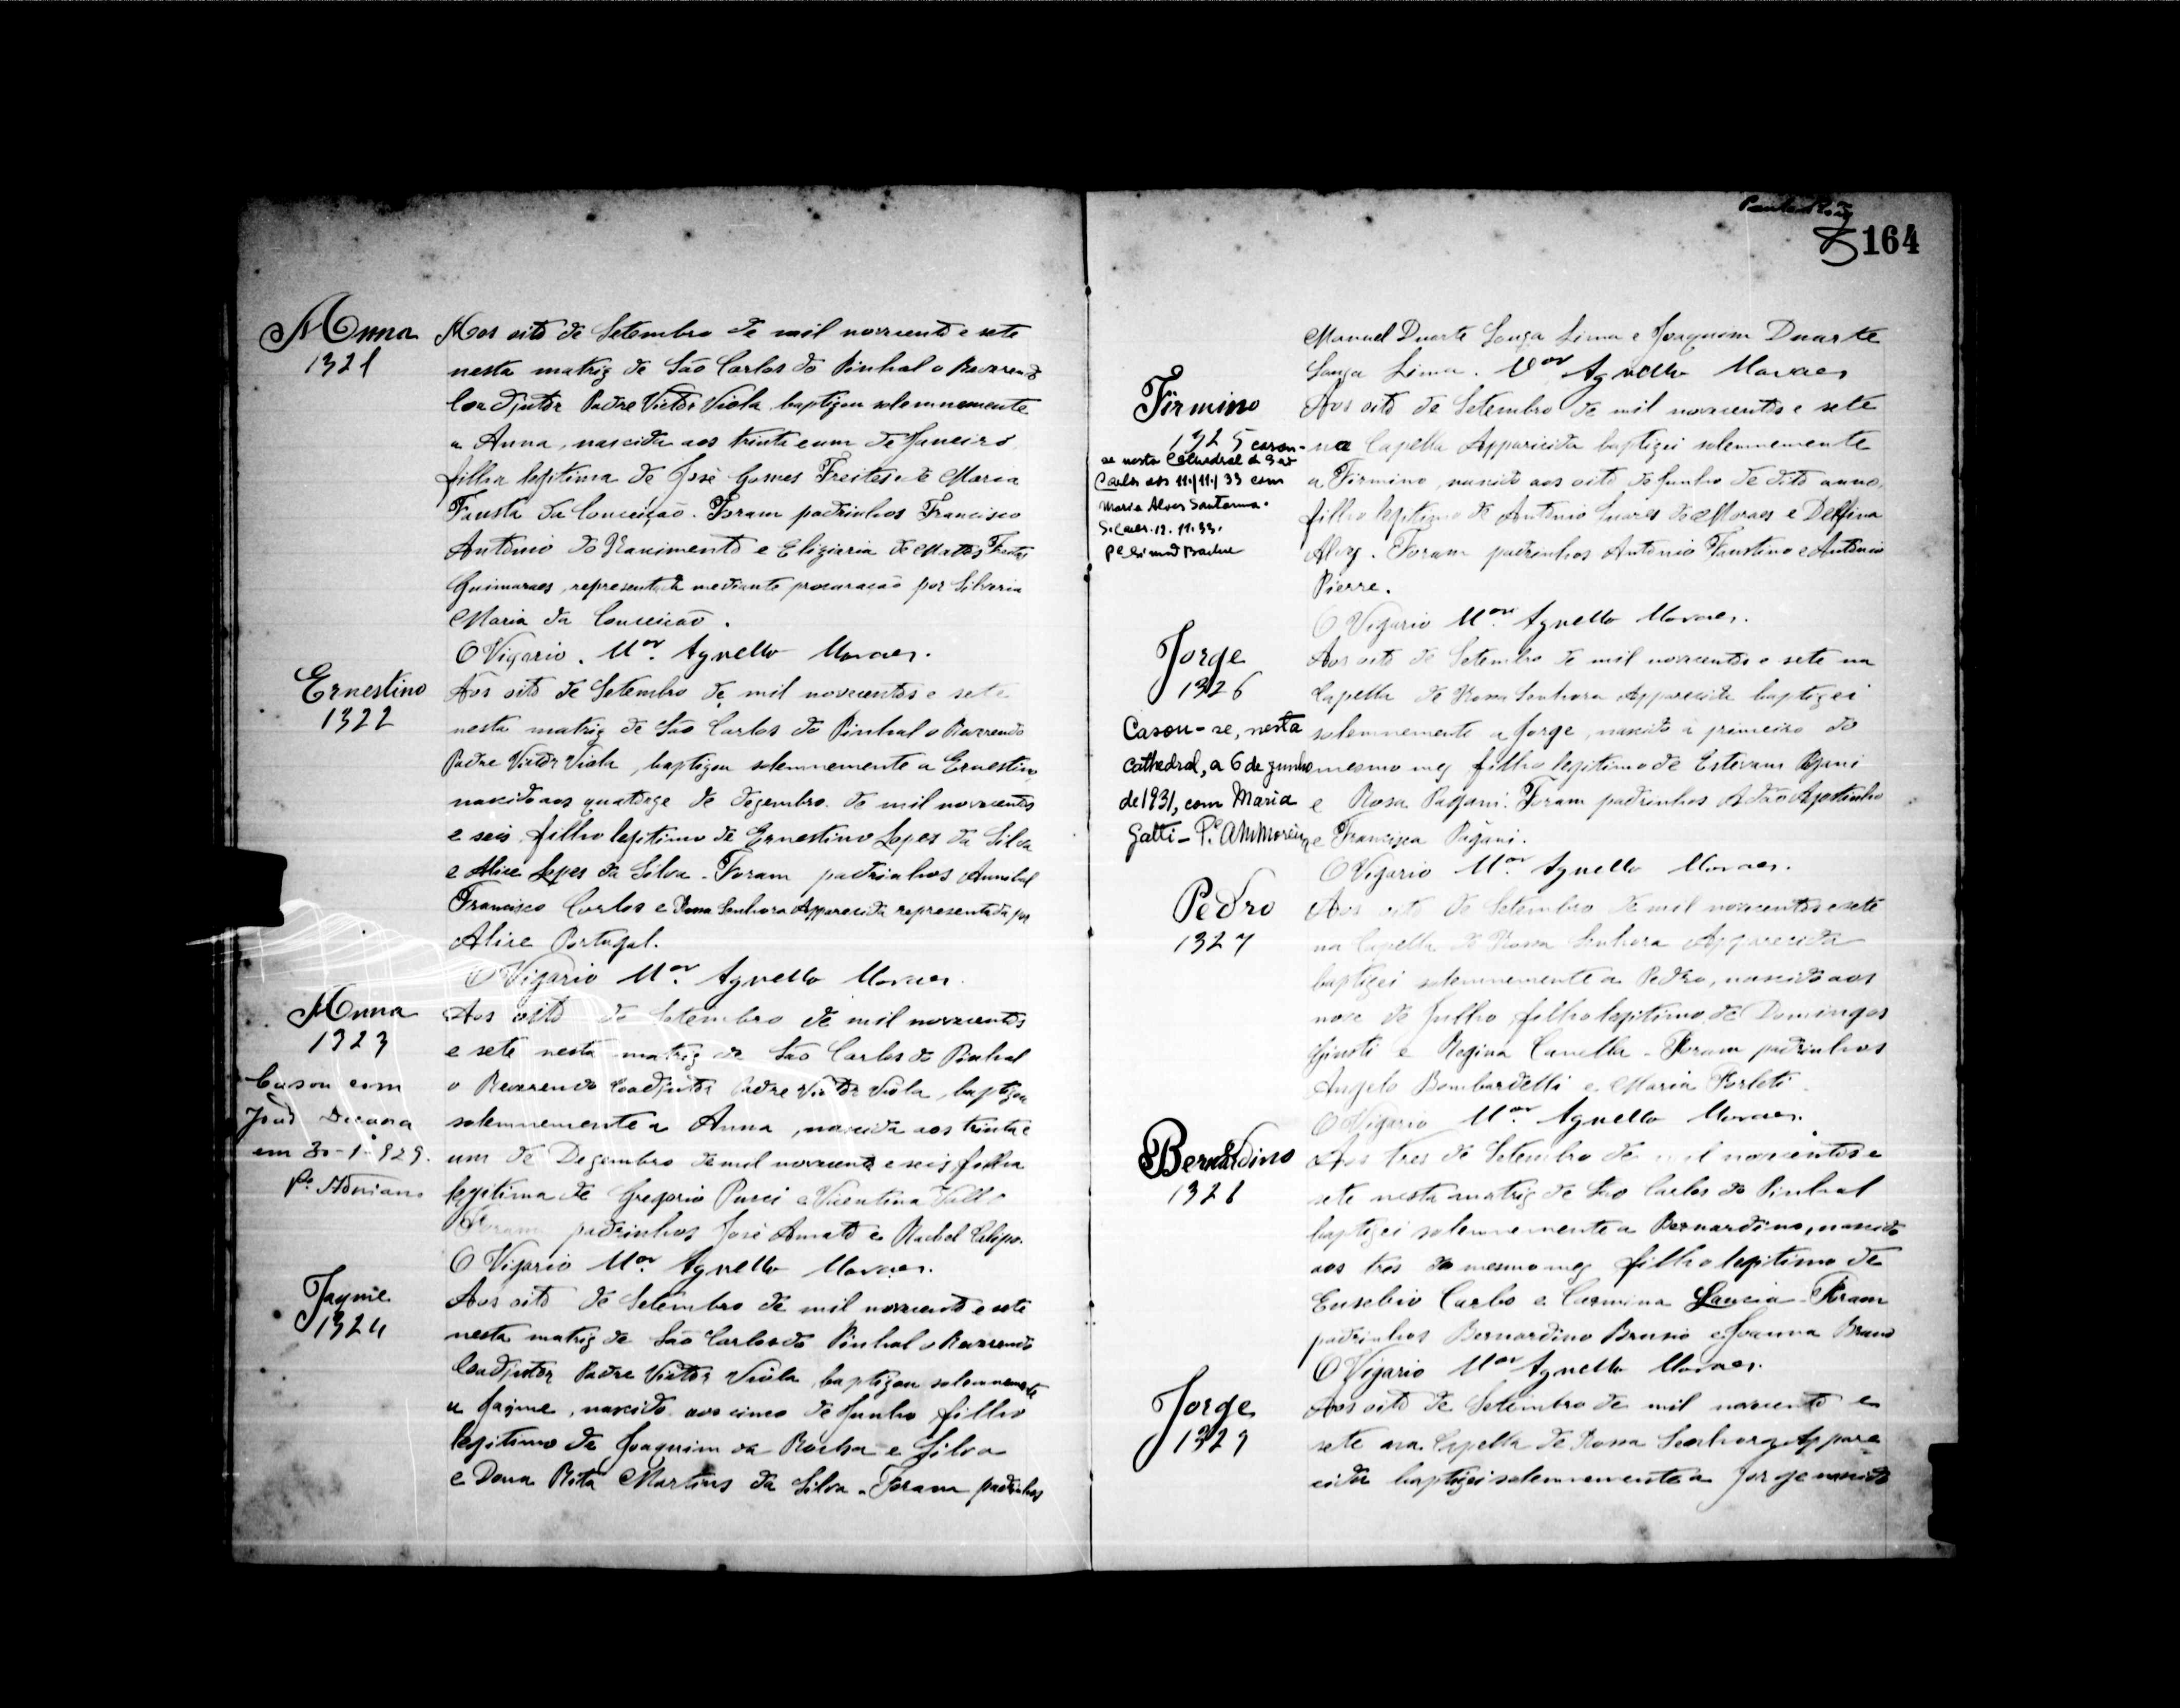 Anna
1321
Aos oito de Setembro de mil novecentos e sete
nesta matriz de São Carlos do Pinhal o Reverendo
Coadjutor Padre Victor Viola baptizou solemnemente
a Anna, nascida aos trinta e um de Janeiro
filha legitima de José Gomes Freitas e de Maria
Fausta da Conceição. Foram padrinhos Francisco
Antonio do Nascimento e Eliziaria de Mattos Freitas
Guimaraes, representada mediante procuração por Silveria
Maria da Conceição.
O Vigario. Mor. Agnello Moraes.
Ernestino
1322
Aos oito de Setembro de mil novecentos e sete
nesta matriz de São Carlos do Pinhal o Reverendo
Padre Victor Viola, baptizou solemnemente a Ernestino
nascido aos quatorze de dezembro de mil novecentos
e seis filho legitimo de Ernestino Lopes da Silva
e Alice Lopes da Silva. Foram padrinhos Annibal
Francisco Carlos e Nossa Senhora Apparecida representada por
Alice Portugal.
O Vigario Mor. Agnello Moraes.
Anna
1323
Casou com
João
em 30-1-929.
Pe. Adriano
Aos oito de Setembro de mil novecentos
e sete nesta matriz de São Carlos do Pinhal
o Reverendo Coadjutor Padre Victor Viola, baptizou
solemnemente a Anna, nascida aos trinta e
um de Dezembro de mil novecentos e seis filha
legitima de Gregorio Pucci e Vicentina
Foram padrinhos José Amato e Rachel
O Vigario Mor. Agnello Moraes.
Jayme
1324
Aos oito de Setembro de mil novecentos e sete
nesta matriz de São Carlos do Pinhal o Reverendo
Coadjutor Padre Victor Viola, baptizou solemnemente
a Jayme, nascido aos cinco de Junho filho
legitimo de Joaquim da Rocha e Silva
e Dona Rita Martins da Silva. Foram padrinhos
164
Manuel Duarte Souza Lima e Joaquim Duarte
Souza Lima. Mor Agnello Moraes
Firmino
1325 casou-
se nesta Cathedral de São
Carlos aos 11/11/33 com
Maria Alves Santanna.
S. Carlos. 12.11.33.
Aos oito de Setembro de mil novecentos e sete
na Capella Apparecida baptizei solemnemente
a Firmino, nascido aos oito de Junho do dito anno,
filho legitimo de Antonio Soares de Moraes e Delfina
Alvz. Foram padrinhos Antonio Faustino e Antonio
Pierre.
O Vigario Mor. Agnello Moraes.
Jorge
1326
Casou-se, nesta
cathedral, a 6 de junho
de 1931, com Maria
Gatti - Pe. AMMoreira
Aos oito de Setembro de mil novecentos e sete na
Capella de Nossa Senhora Apparecida baptizei
solemnemente a Jorge, nascido a primeiro do
mesmo mez filho legitimo de Estevam Pagani
e Rosa Pagani. Foram padrinhos Adão Agostinho
e Francisca Pagani.
O Vigario Mor. Agnello Moraes.
Pedro
1327
Aos oito de Setembro de mil novecentos e sete
na Capella de Nossa Senhora Apparecida
baptizei solemnemente a Pedro, nascido aos
nove de Julho filho legitimo de Domingos
Giusti e Regina Canella. Foram padrinhos
Angelo Bombardelli e Maria Forleti.
O Vigario Mor. Agnello Moraes.
Bernardino
1328
Aos tres de Setembro de mil novecentos e
sete nesta matriz de São Carlos do Pinhal
baptizei solemnemente a Bernardino, nascido
aos tres do mesmo mez filho legitimo de
Eusebio Carlo e Carmina Lancia. Foram
padrinhos Bernardino Brusio e Joanna Bruno
O Vigario Mor Agnello Moraes.
Jorge
1329
Aos oito de Setembro de mil novecentos e
sete na Capella de Nossa Senhora Appare
cida baptizei solemnemente a Jorge nascido